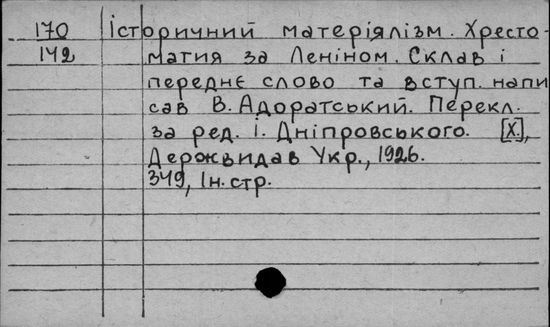 170 Історичний матеріялізм. Хресто-
142 матия за Леніном. Склав і
переднє слово та вступ. напи
сав В. Адоратський. Перекл.
за ред. І. Дніпровського. [Х.],
Держвидав Укр., 1926.
349, Ін. стр.